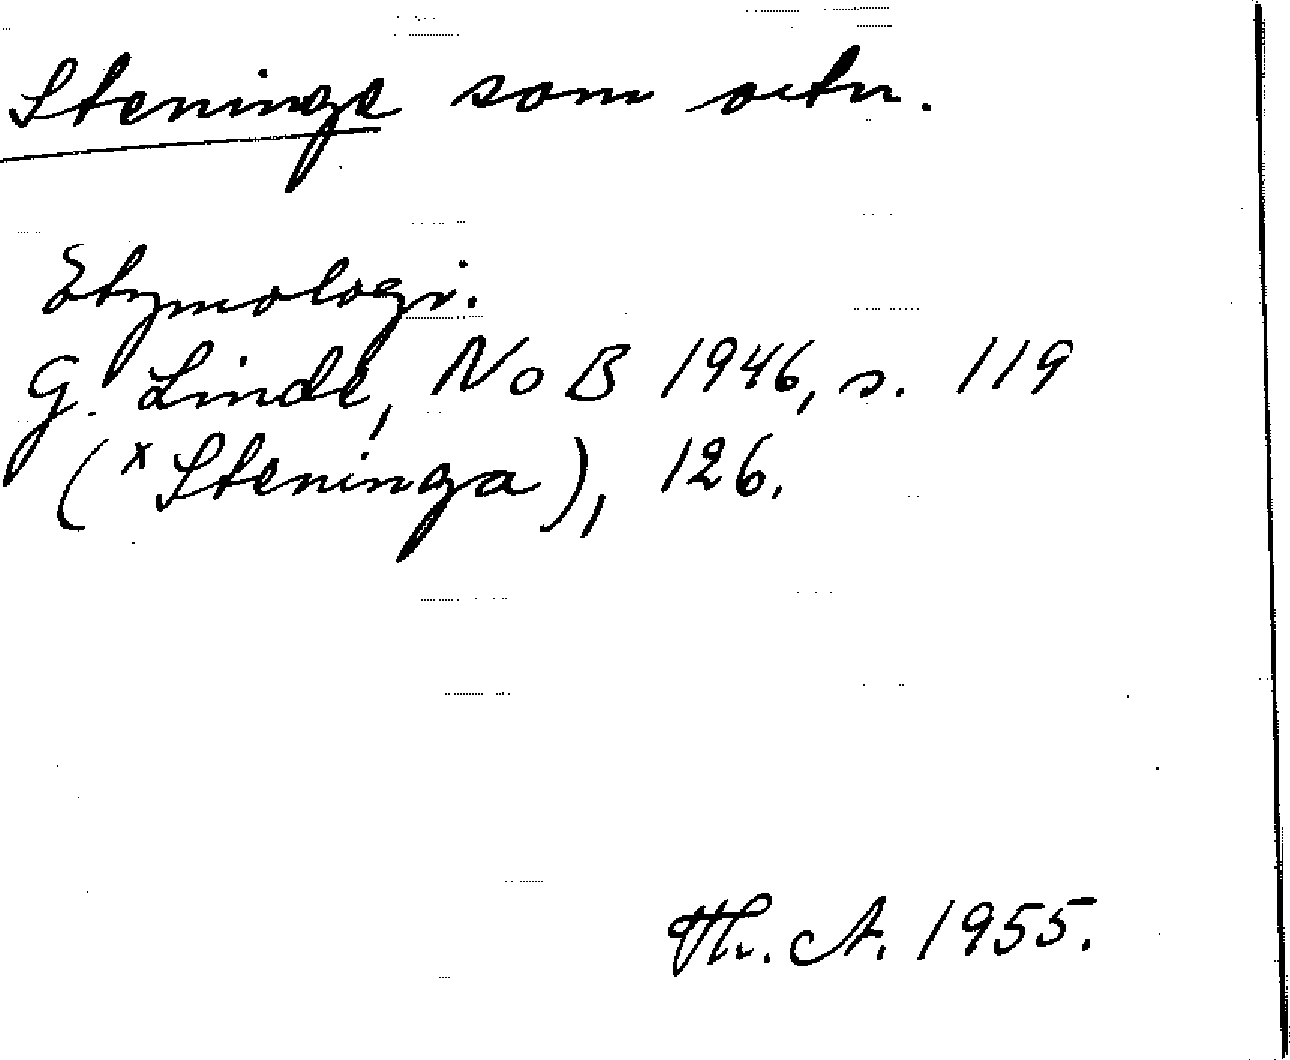 Steninge som ortn.
Etymologi.
G. Linde, NoB 1946, s. 119
(*Steninga), 126.
Th. A. 1955.